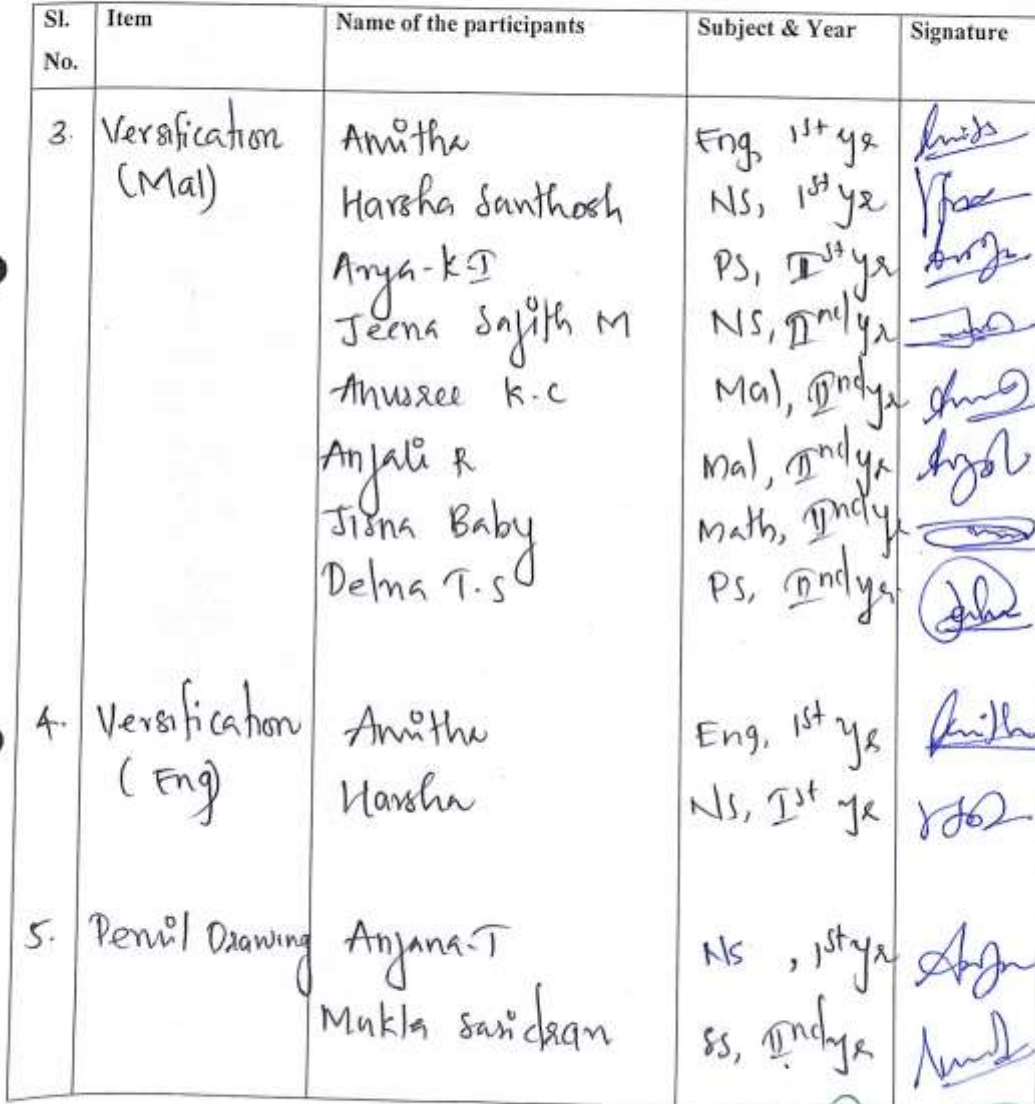 Sl. No. Item Name of the participants Subject & Year Signature
3. Versification Amitha Eng, 1st yr
(Mal) Harsha Santhosh NS, 1st yr
Arya-K.I PS, IIst yr
Jeena Sajith M NS, IInd yr
Anusree K.C Mal, IInd yr
Anjali R Mal, IInd yr
Jisna Baby Math, IInd yr
Delna T.S PS, IInd yr
4. Versification Amitha Eng, 1st yr
(Eng) Harsha NS, Ist yr
5. Pencil Drawing Anjana-T NS, 1st yr
Mukta Sasidran SS, IInd yr